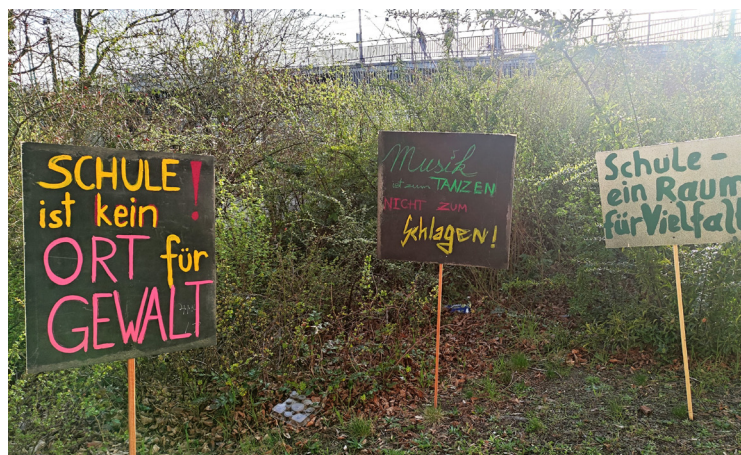 SCHULE!
ist kein
ORT für
GEWALT
Musik
ist zum TANZEN
NICHT ZUM
Schlagen!
Schule -
ein Raum
für Vielfalt